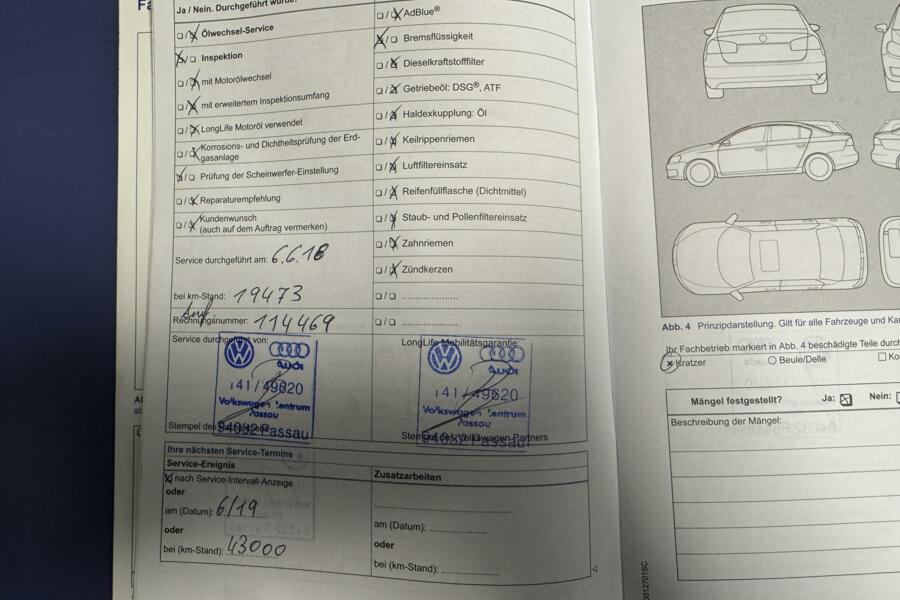 Fa
Ja / Nein. Durchgeführt wurde:
Ölwechsel-Service
Inspektion
mit Motorölwechsel
mit erweitertem Inspektionsumfang
LongLife Motoröl verwendet
Korrosions- und Dichtheitsprüfung der Erd-
gasanlage
Prüfung der Scheinwerfer-Einstellung
Reparaturempfehlung
Kundenwunsch
(auch auf dem Auftrag vermerken)
Service durchgeführt am: 6.6.18
bei km-Stand: 19473
Rechnungsnummer: 114469
Service durchgeführt von:
VW
Audi
141/49620
Volkswagen Zentrum
Passau
94032 Passau
Stempel des
AdBlue®
Bremsflüssigkeit
Dieselkraftstofffilter
Getriebeöl: DSG®, ATF
Haldexkupplung: Öl
Keilrippenriemen
Luftfiltereinsatz
Reifenfüllflasche (Dichtmittel)
Staub- und Pollenfiltereinsatz
Zahnriemen
Zündkerzen
LongLife Mobilitätsgarantie:
VW
Audi
141/49620
Volkswagen Zentrum
Passau
94032 Passau
Stempel des Volkswagen Partners
Ihre nächsten Service-Termine
Service-Ereignis
nach Service-Intervall-Anzeige
oder
am (Datum): 6/19
oder
bei (km-Stand): 43000
Zusatzarbeiten
am (Datum):
oder
bei (km-Stand):
Abb. 4 Prinzipdarstellung. Gilt für alle Fahrzeuge und Ka
Ihr Fachbetrieb markiert in Abb. 4 beschädigte Teile durch
Kratzer
Beule/Delle
Ko
Mängel festgestellt? Ja: Nein:
Beschreibung der Mängel: